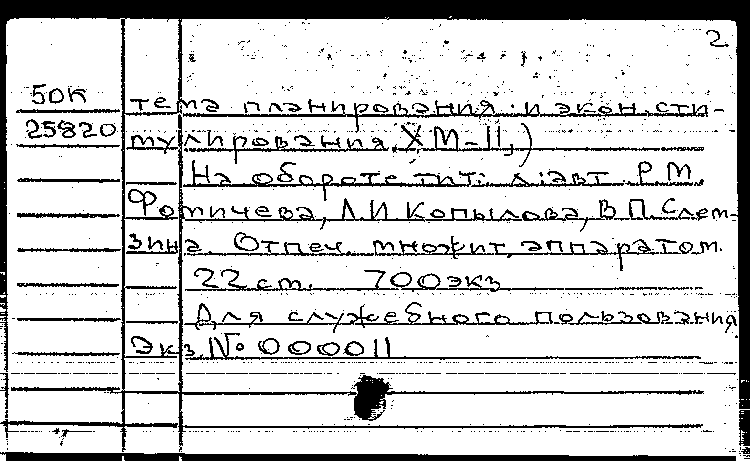 2
50К тема планирования и экон. сти-
25820 мулирования. ХМ-11,)
На обороте тит. л.: авт. Р.М.
Фомичева, Л.И Копылова, В.П. Слем-
зина. Отпеч. множит. аппаратом.
22 ст. 700 экз
Для служебного пользования
Экз. № 000011